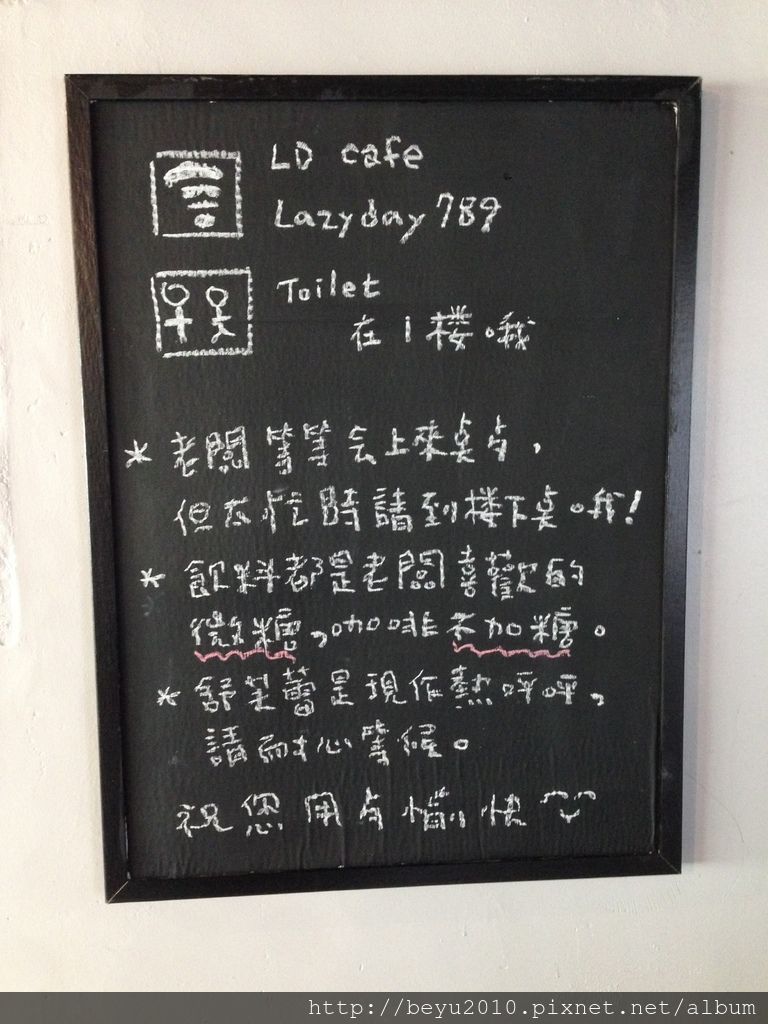 LD cafe
Lazyday789
Toilet
在1楼哦
*老闆等等会上來桌点,
但太忙時請到楼下桌哦!
*飲料都是老闆喜歡的
微糖,咖啡不加糖。
*舒芙蕾是現作熱呼呼,
請耐心等候。
祝您用歺愉快
http://beyu2010.pixnet.net/album